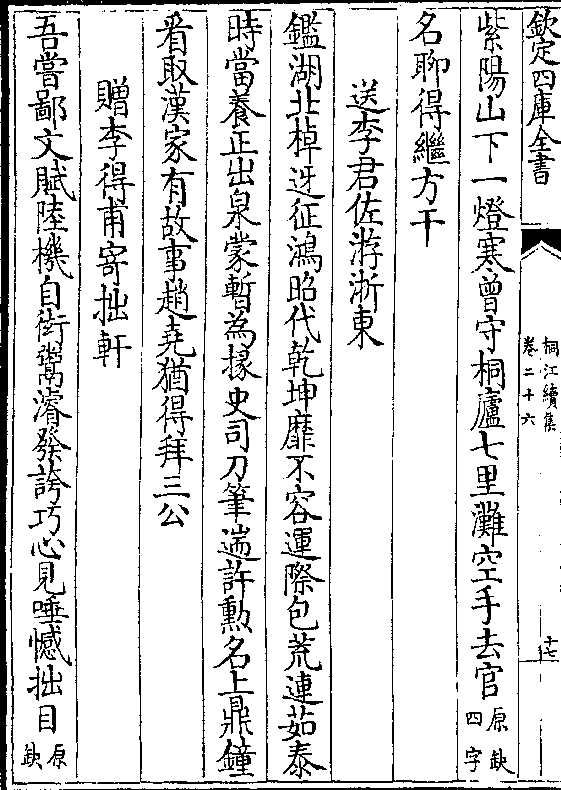 欽定四庫全書
桐江續集
卷二十六
十七
紫陽山下一燈寒曾守桐廬七里灘空手去官原缺四字
名聊得繼方干
送李君佐游浙東
鑑湖北棹迓征鴻昭代乾坤靡不容運際包荒連茹泰
時當養正出泉蒙暫為掾史司刀筆遄許勲名上鼎鐘
看取漢家有故事趙堯猶得拜三公
贈李得甫寄拙軒
吾嘗鄙文賦陸機自衒鬻濬發誇巧心見唾憾拙目原缺